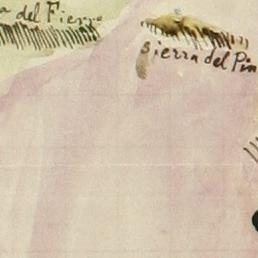 a del Fierro
sierra del Pin